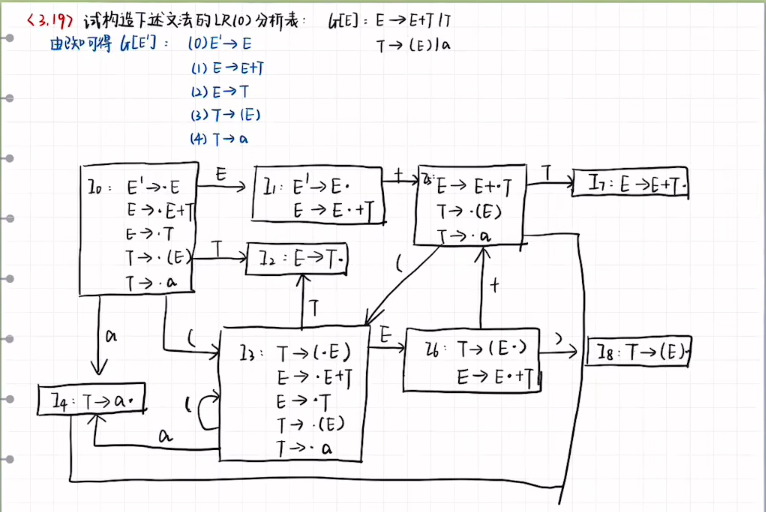 <3.19> 试构造下述文法的LR(0)分析表: G[E]: E→E+T|T
T→(E)|a
由已知可得 G[E']: (0)E'→E
(1) E→E+T
(2) E→T
(3) T→(E)
(4) T→a
I0: E'→·E
E→·E+T
E→·T
T→·(E)
T→·a
E
I1: E'→E·
E→E·+T
+
I5: E→E+·T
T→·(E)
T→·a
T
I7: E→E+T·
T
I2: E→T·
(
T
+
a
(
I3: T→(·E)
E→·E+T
E→·T
T→·(E)
T→·a
E
I6: T→(E·)
E→E·+T
)
I8: T→(E)·
I4: T→a·
(
a